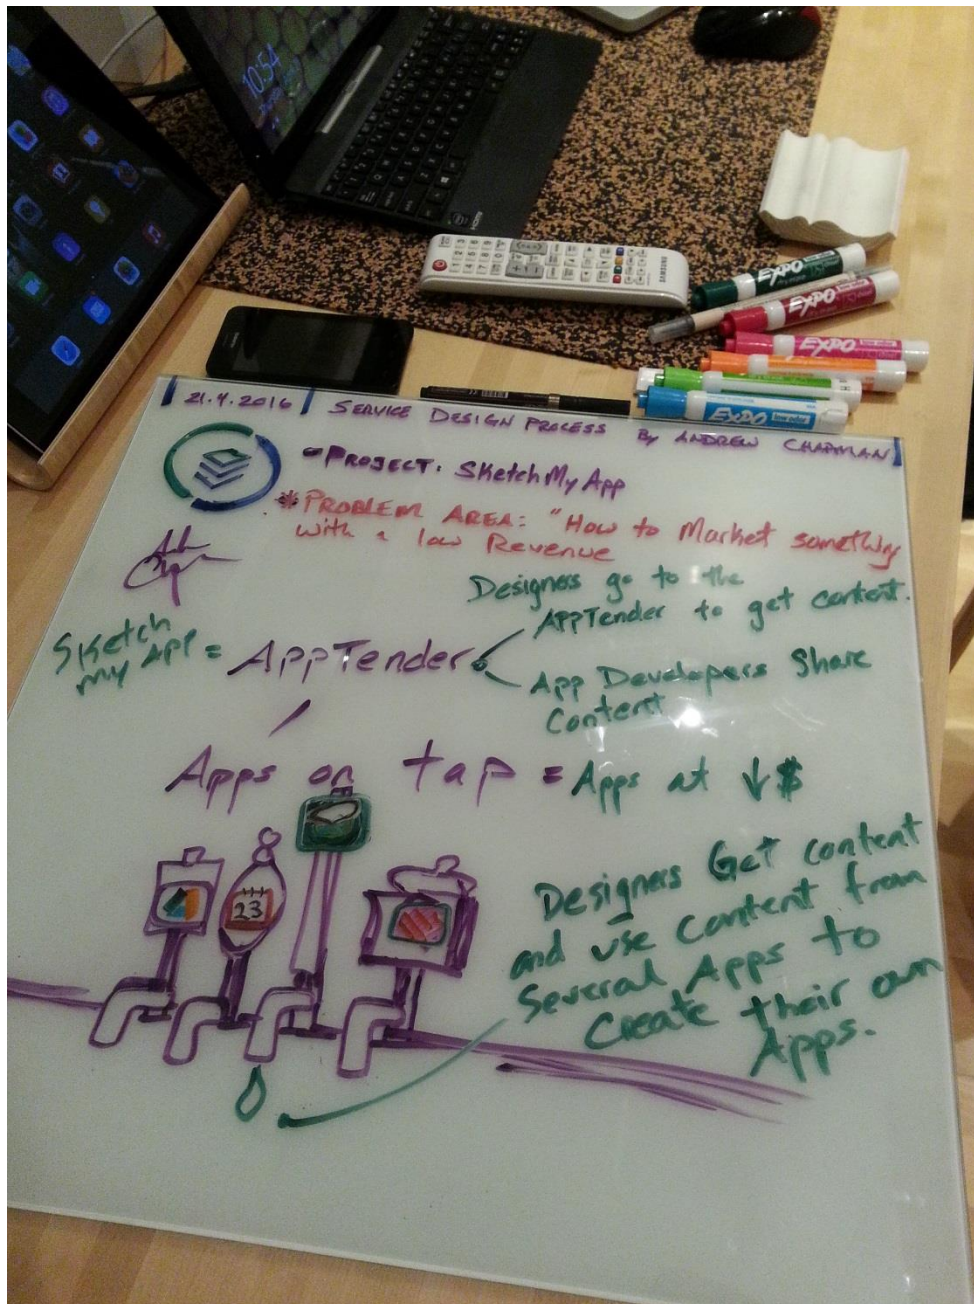 10:54
SAMSUNG
EXPO
EXPO
EXPO
EXPO
21.4.2016 | SERVICE DESIGN PROCESS By ANDREW CHAPMAN
- PROJECT: SketchMyApp
* PROBLEM AREA: "How to Market something
with a low Revenue
Designers go to the
AppTender to get content.
Sketch
my App = AppTender
App Developers Share
Content
Apps on tap = Apps at ↓ $
23
Designers Get content
and use content from
Several Apps to
Create their own
Apps.